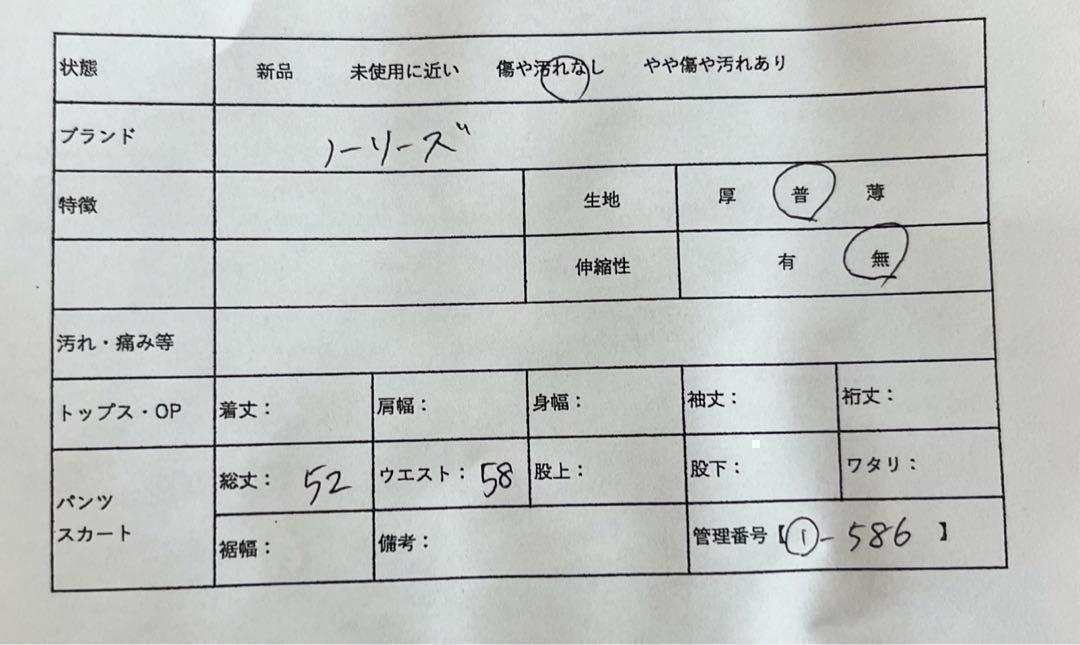 状態 新品 未使用に近い 傷や汚れなし やや傷や汚れあり
ブランド ノーリーズ
特徴 生地 厚 普 薄
伸縮性 有 無
汚れ・痛み等
トップス・OP 着丈： 肩幅： 身幅： 袖丈： 裄丈：
パンツ
スカート
総丈： 52 ウエスト： 58 股上： 股下： ワタリ：
裾幅： 備考： 管理番号【①-586 】